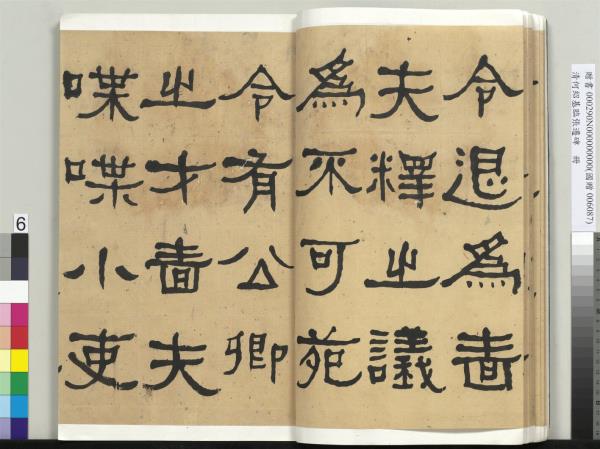 贈書 000290N000000000(國贈 006087)
清何紹基臨張遷碑 冊
令退為嗇
夫釋之議
為不可苑
令有公卿
之才嗇夫
喋喋小吏
6